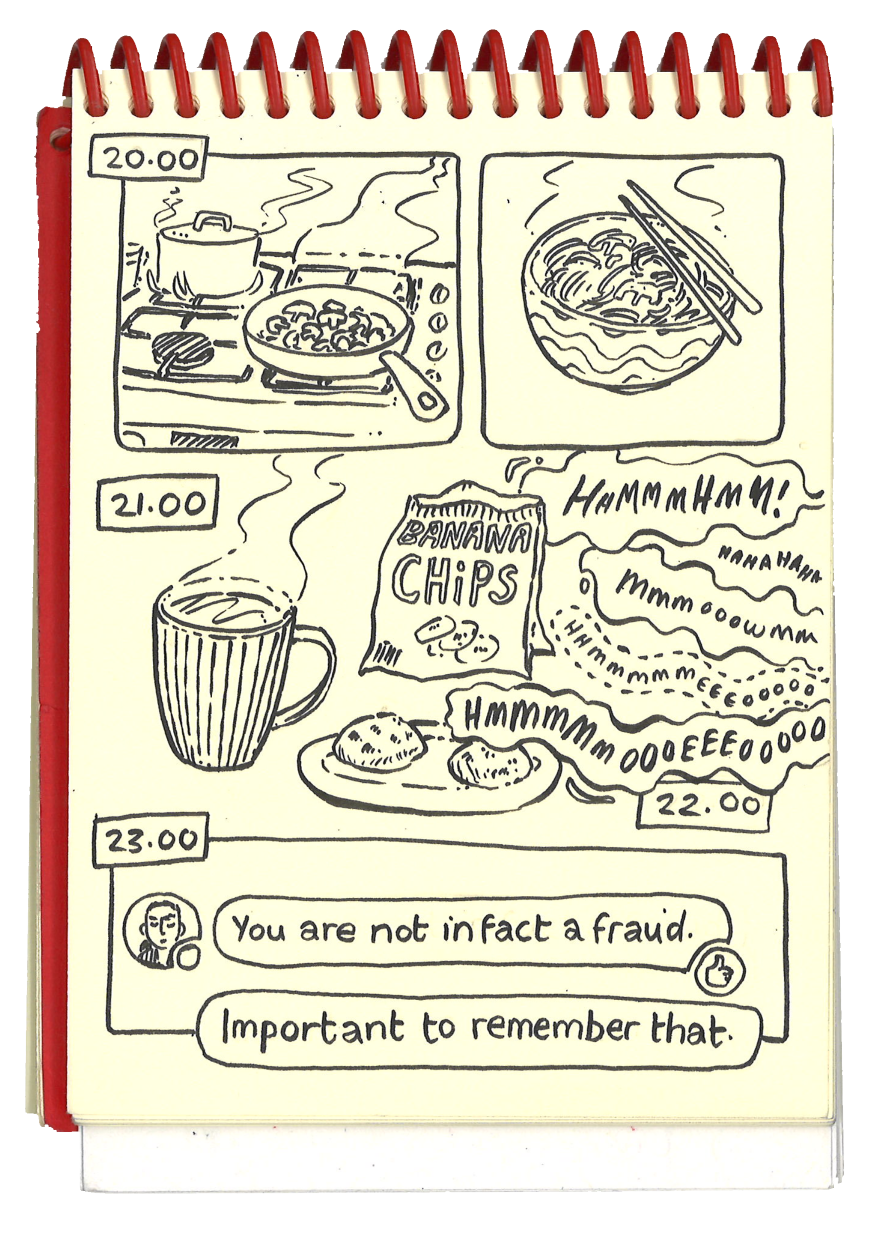 20.00
21.00
BANANA
CHiPS
HHMMMMHMM!
HAHAHAHA
MMMMOOOWMM
HHMMMMMMEEEOOOOO
HMMMMMMOOOEEEOOOOO
22.00
23.00
You are not in fact a fraud.
Important to remember that.